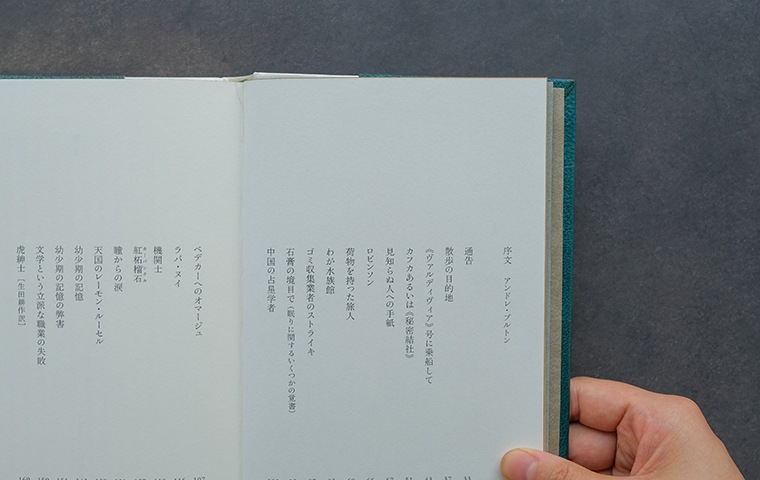 序文　アンドレ・ブルトン
通告
散歩の目的地
《ヴァルディヴィア》号に乗船して
カフカあるいは《秘密結社》
見知らぬ人への手紙
ロビンソン
荷物を持った旅人
わが水族館
ゴミ収集業者のストライキ
石膏の境目で（眠りに関するいくつかの覚書）
中国の占星学者
ベデカーへのオマージュ
ラパ・ヌイ
機関士
紅柘榴石
瞳からの涙
天国のレーモン・ルーセル
幼少期の記憶
幼少期の記憶の弊害
文学という立派な職業の失敗
虎紳士［生田耕作訳］